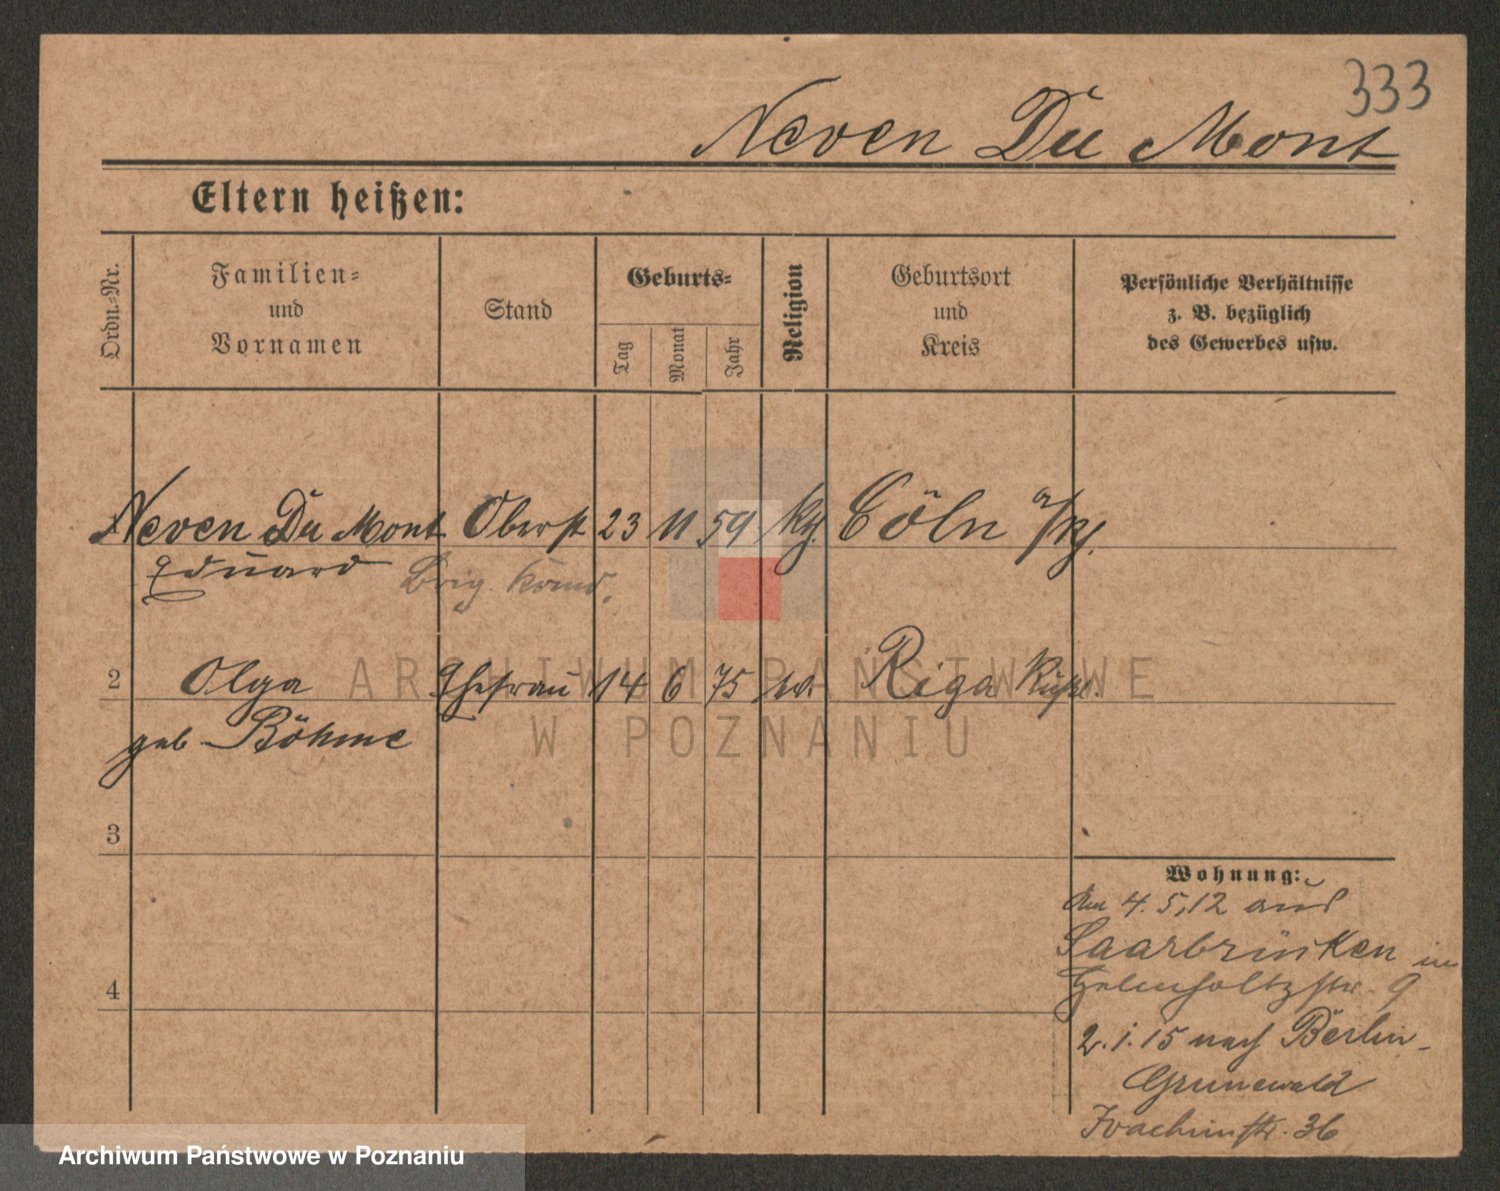 333
Neven Du Mont
Eltern heißen:
Ordn.-Nr.
Familien-
und
Vornamen
Stand
Geburts-
Tag
Monat
Jahr
Religion
Geburtsort
und
Kreis
Persönliche Verhältnisse
z. B. bezüglich
des Gewerbes usw.
Neven Du Mont Oberst 23 11 59 Cöln a/Rh.
Eduard Brig. Komd.
2 Olga Ehefrau 14 6 75 Riga
geb Böhme
3
Wohnung:
Am 4.5.12 aus
Saarbrücken in
Helmholtzstr. 9
4
2.1.15 nach Berlin-
Grunewald
Joachimstr. 36
ARCHIWUM PAŃSTWOWE
W POZNANIU
Archiwum Państwowe w Poznaniu